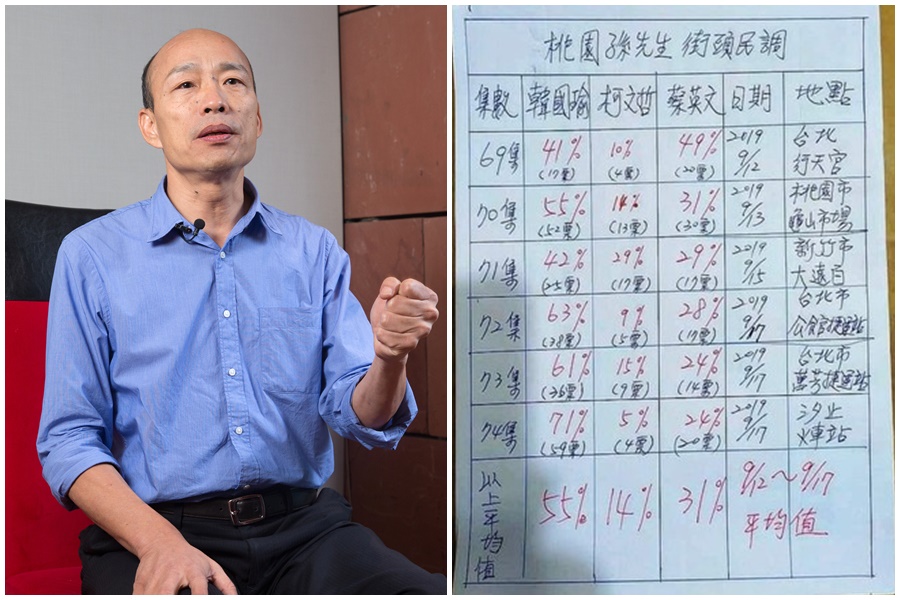 桃園孫先生 街頭民調
集數 韓國瑜 柯文哲 蔡英文 日期 地點
69集 41% 10% 49% 2019 台北
(17票) (4票) (20票) 9/12 行天宮
70集 55% 14% 31% 2019 桃園市
(52票) (13票) (30票) 9/13 龜山市場
71集 42% 29% 29% 2019 新竹市
(25票) (17票) (17票) 9/15 大遠百
72集 63% 9% 28% 2019 台北市
(38票) (5票) (17票) 9/17 公館捷運站
73集 61% 15% 24% 2019 台北市
(36票) (9票) (14票) 9/17 萬芳捷運站
74集 71% 5% 24% 2019 汐止
(59票) (4票) (20票) 9/17 火車站
以上平均值 55% 14% 31% 9/12~9/17
平均值